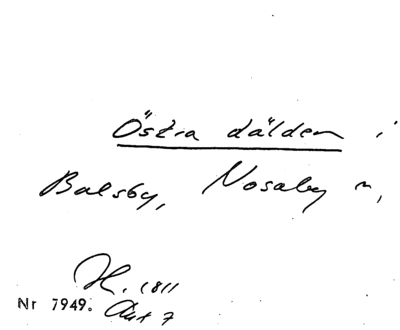 Östra dälden i
Balsby, Nosaby n,
H. 1811
Nr 7949. Akt 7